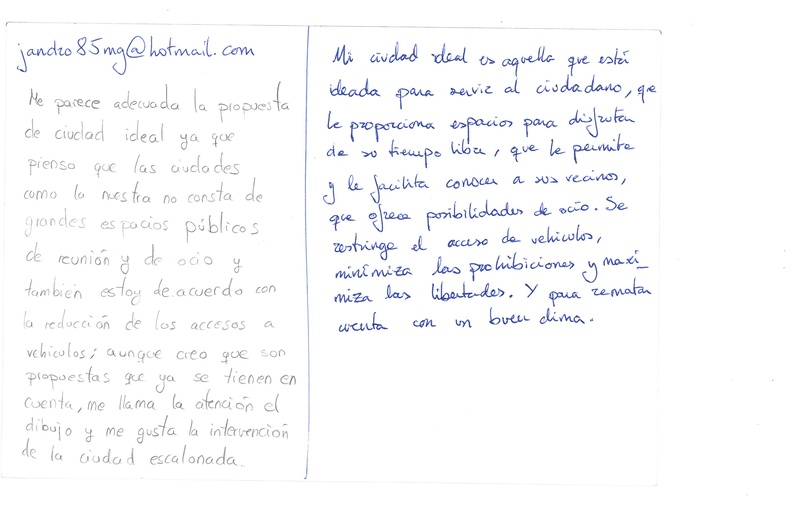 jandro85mg@hotmail.com
Me parece adecuada la propuesta
de ciudad ideal ya que
pienso que las ciudades
como la nuestra no consta de
grandes espacios públicos
de reunión y de ocio y
también estoy de acuerdo con
la reducción de los accesos a
vehiculos; aunque creo que son
propuestas que ya se tienen en
cuenta, me llama la atención el
dibujo y me gusta la intervención
de la ciudad escalonada.
Mi ciudad ideal es aquella que está
ideada para servir al ciudadano, que
le proporciona espacios para disfrutar
de su tiempo libre, que le permite
y le facilita conocer a sus vecinos,
que ofrece posibilidades de ocio. Se
restringe el acceso de vehiculos,
minimiza las prohibiciones y maxi_
miza las libertades. Y para rematar
cuenta con un buen clima.